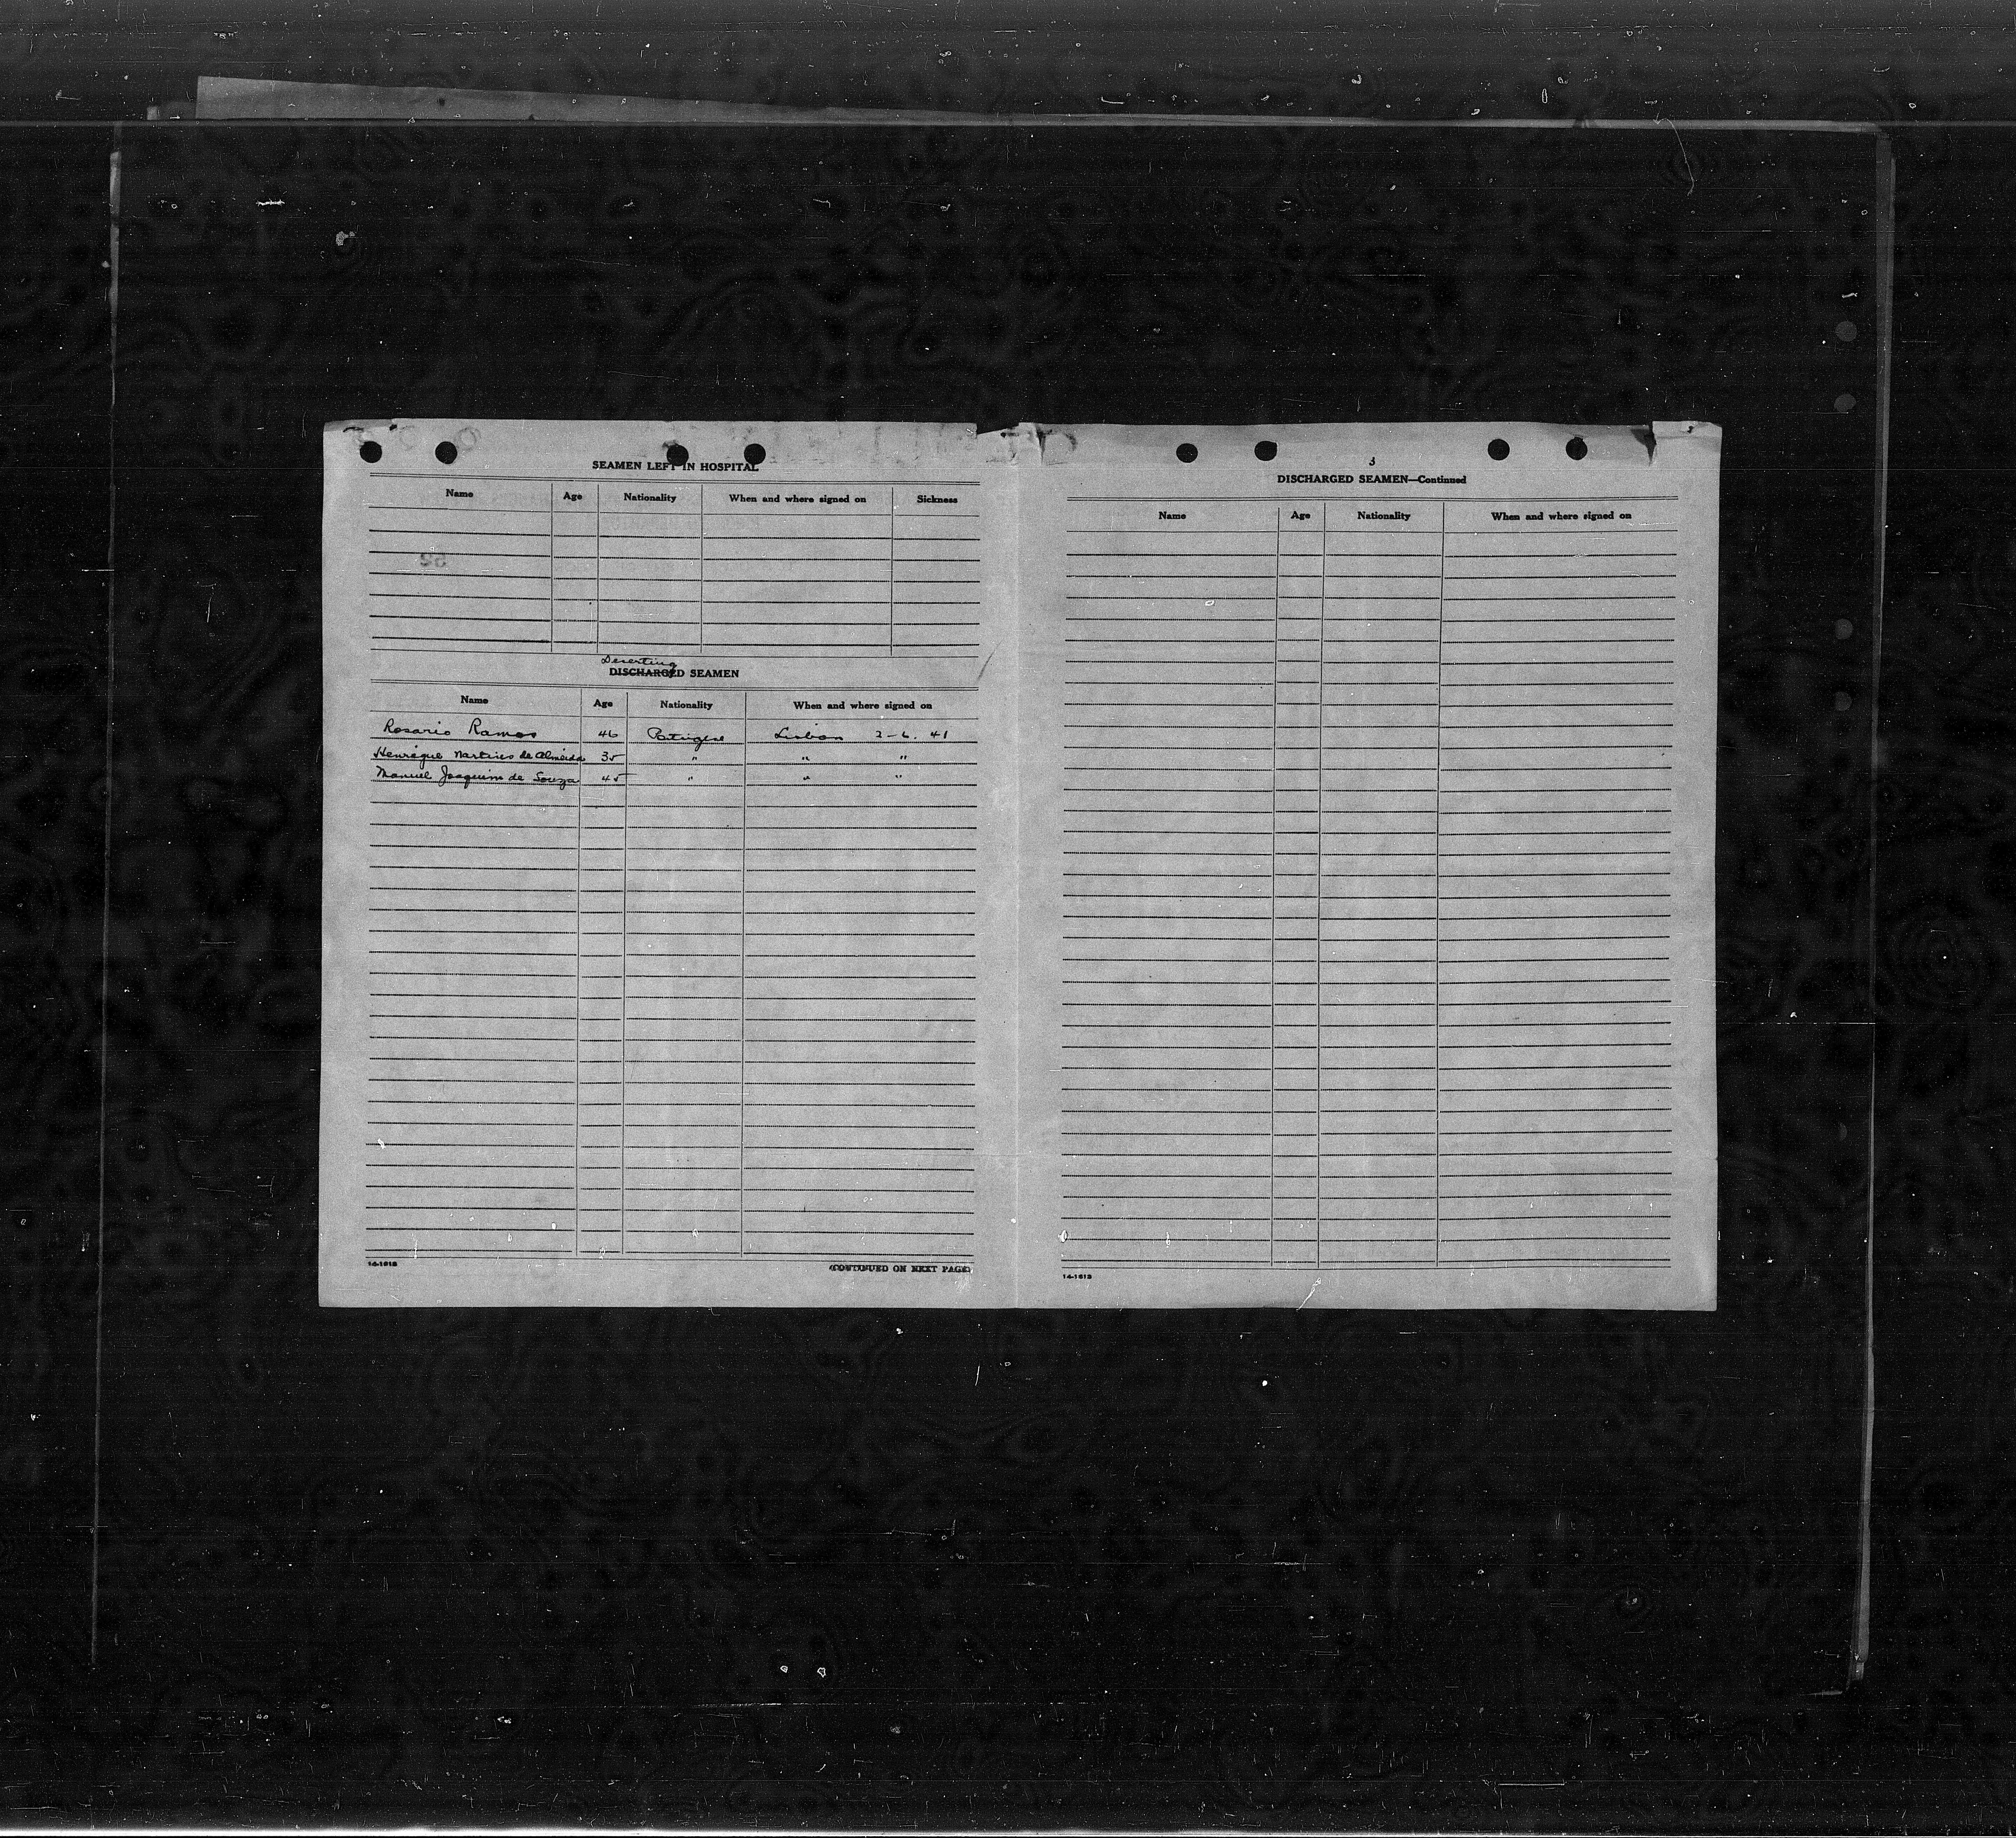 SEAMEN LEFT IN HOSPITAL
Name Age Nationality When and where signed on Sickness
Deserting
DISCHARGED SEAMEN
Name Age Nationality When and where signed on
Rosario Ramos 46 Lisbon 2-6. 41
Henrique Martires de Almeida 35 " " "
Manuel Joaquim de Souza 45 " " "
14-1613
(CONTINUED ON NEXT PAGE)
3
DISCHARGED SEAMEN—Continued
Name Age Nationality When and where signed on
14-1613